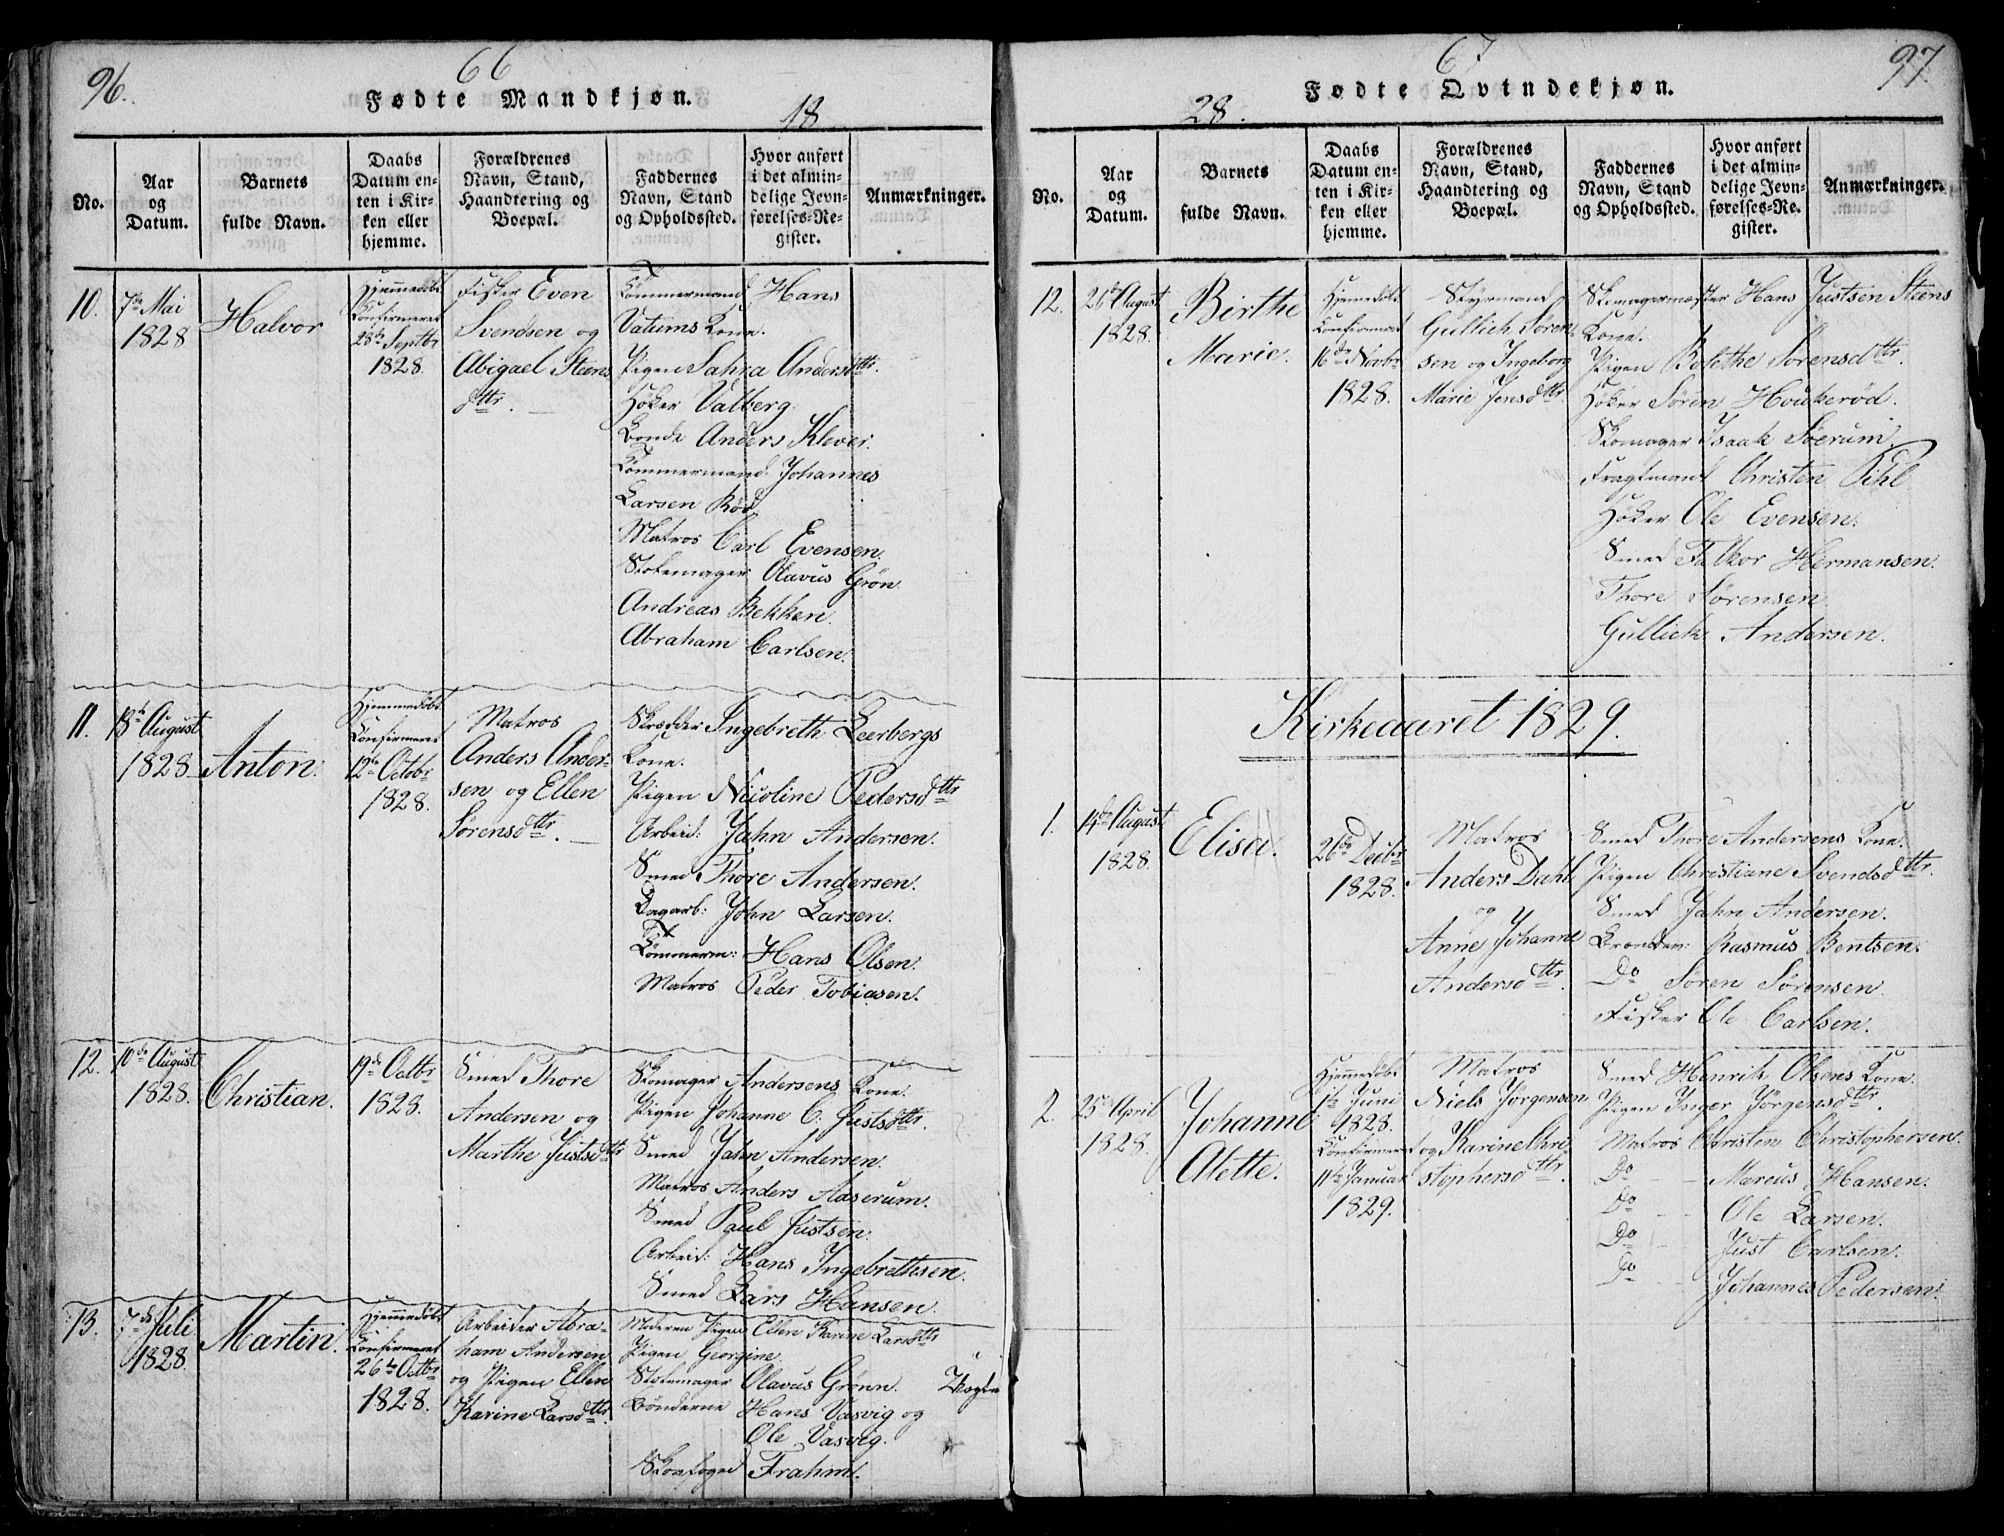 96.
66
Fødte Mandkjøn.
18
No.
Aar og Datum.
Barnets fulde Navn.
Daabs Datum enten i Kirken eller hjemme.
Forældrenes Navn, Stand, Haandtering og Boepæl.
Faddernes Navn, Stand og Opholdssted.
Hvor anført i det almindelige Jevnførelses-Register.
Anmærkninger.
10.
7de Mai
1828
Halvor
Hjemmedøbt
Confirmeret
28de Septbr
1828.
Fisker Even
Svendsen og
Abigael Steens
dttr.
Tømmermand Hans
Vatums Kone.
Pigen Sahra Andersdttr.
Høker Valberg.
Bonde Anders Klever.
Tømmermand Johannes
Larsen Röd
Matros Carl Evensen.
Stolemager Olavus Grøn.
Andreas Bekken.
Abraham Carlsen.
11.
13de August
1828
Anton.
Hjemmedøbt
Confirmeret
12te Octobr
1828.
Matros
Anders Ander-
sen og Ellen
Sørensdttr.
Skrædder Ingebreth Leerbergs
Kone.
Pigen Nicoline Pedersdttr
Arbeid: Jahn Andersen.
Smed Thore Andersen.
Dagarb: John Larsen.
Tømmerm: Hans Olsen.
Matros Peder Tobiasen.
12.
10de August
1828.
Christian.
19de Octbr
1828.
Smed Thore
Andersen og
Marthe Justsdttr
Skomager Andersens Kone.
Pigen Johanne C. Justsdttr.
Smed Jahn Andersen.
Matros Anders Aaserum.
Smed Paul Justsen.
Arbeid: Hans Ingebrethsen.
Smed Lars Hansen.
13.
7de Juli
1828.
Martin.
Hjemmedøbt
Confirmeret
26de Octbr
1828.
Arbeider Abra-
ham Andersen
og Pigen Ellen
Karine Larsdttr.
Moderen Pigen Ellen Karine Larsdttr
Pigen Georgine
Stolemager Olavus Grönn.
Bønderne Hans Vasvig og
Ole Vasvig.
Skovfoged Frahm.
97.
67
Fødte Qvindekjøn.
28.
No.
Aar og Datum.
Barnets fulde Navn.
Daabs Datum enten i Kirken eller hjemme.
Forældrenes Navn, Stand, Haandtering og Boepæl.
Faddernes Navn, Stand og Opholdssted.
Hvor anført i det almindelige Jevnførelses-Register.
Anmærkninger.
12.
26de August
1828.
Birthe
Marie.
Hjemmedøbt
Confirmeret
16de Novbr
1828.
Styrmand
Gullich Søren-
sen og Ingeborg
Marie Jensdttr.
Skomagermester Hans Justsen Steens
Kone.
Pigen Bolethe Sørensdttr.
Høker Søren Houkerød.
Skomager Isaak Söerum.
Fragtmand Christen Pihl
Høker Ole Evensen.
Smed Falkor Hermansen.
Thore Sørensen.
Gullich Andersen.
Kirkeaaret 1829.
1.
14de August
1828.
Elisa.
26de Decbr
1828.
Matros
Anders Dahl
og
Anne Johanne
Andersdttr.
Smed Thore Andersens Kone.
Pigen Christiane Svendsdttr.
Smed Jahn Andersen.
Rasmus Bentsen.
Do Sören Sörensen.
Fisker Ole Carlsen.
2.
25 April
1828.
Johanne
Alette.
Hjemmedøbt
1te Juni
1828.
Confirmeret
11te Januar
1829.
Matros
Niels Jørgensen
og Karine Chri-
stophersdttr.
Smed Henrik Olsens Kone.
Pigen Inger Jørgensdttr.
Matros Christen Christophersen.
Do Marcus Hansen.
Do Ole Larsen.
Do Just Carlsen.
Do Johannes Pedersen.